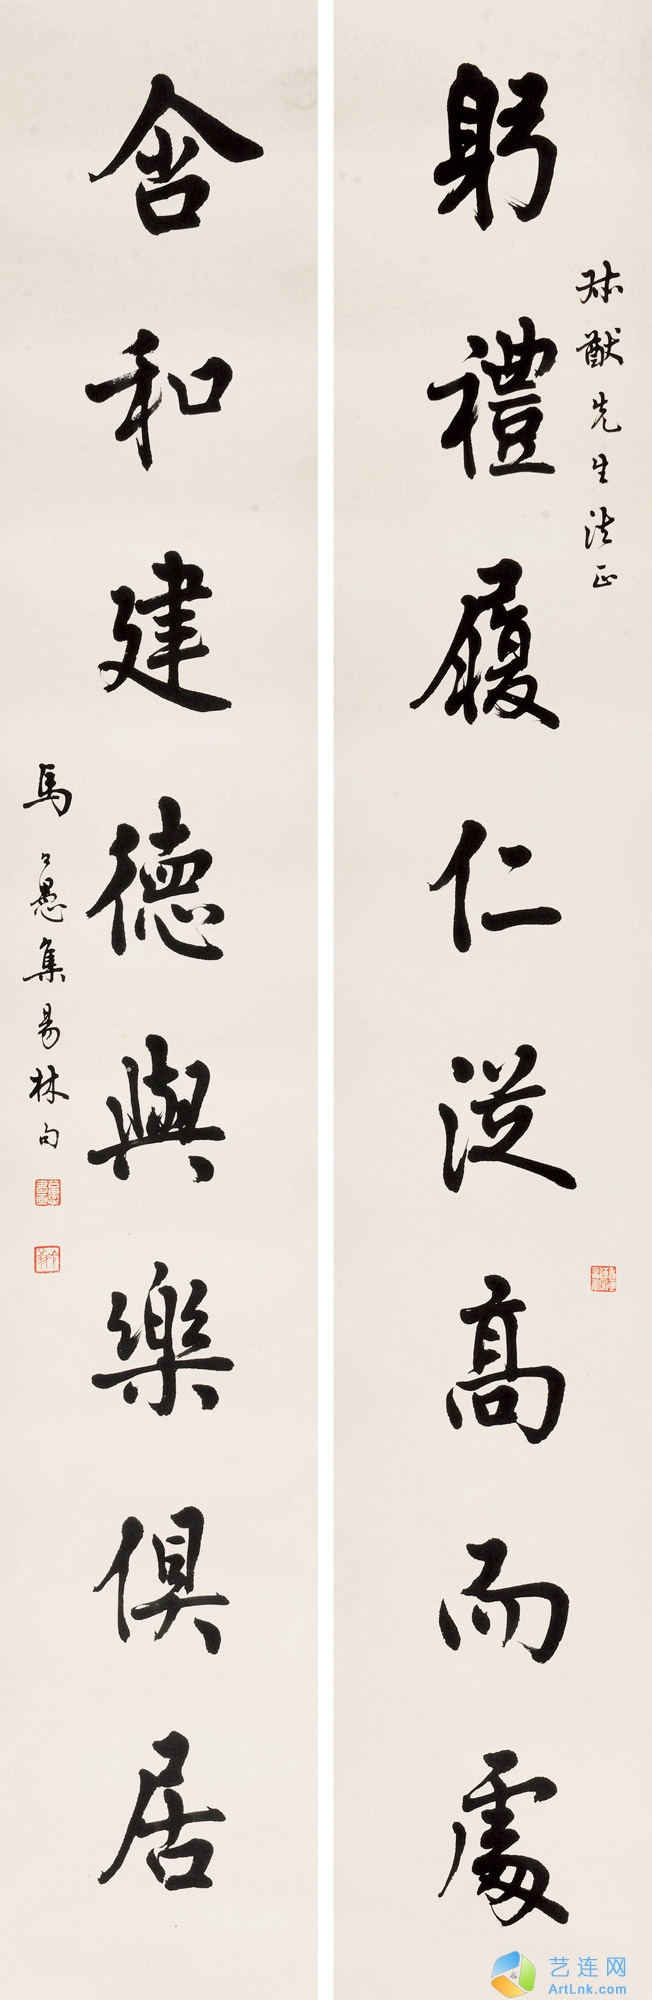 躬禮履仁從高而處
猷先生法正
含和建德與樂俱居
馬公愚集易林句
艺连网
ArtLnk.com